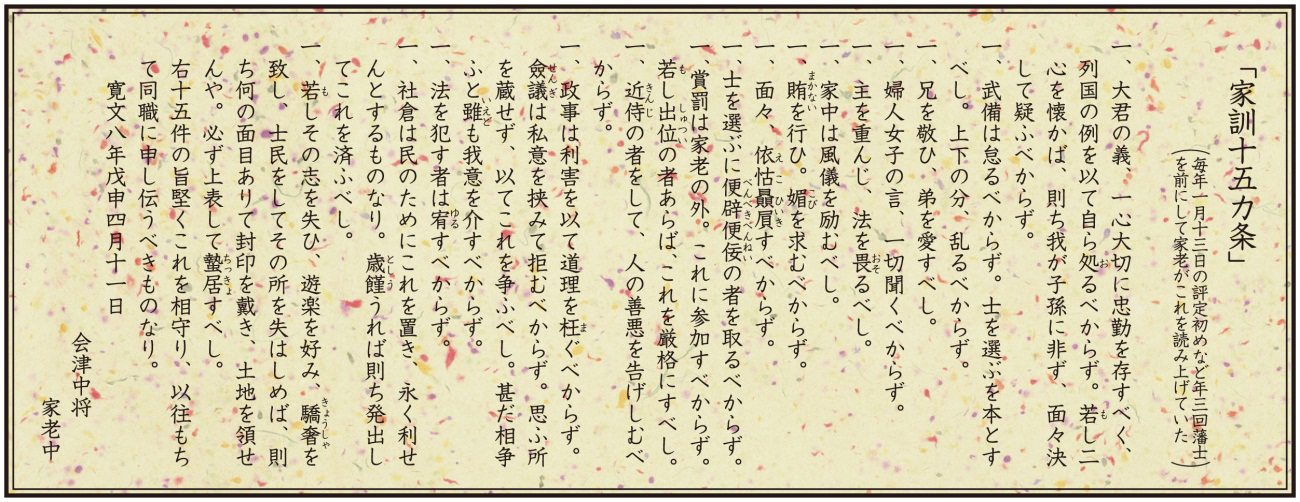 「家訓十五カ条」
（毎年一月十三日の評定初めなど年三回藩士
を前にして家老がこれを読み上げていた）
一、大君の義、一心大切に忠勤を存すべく、
列国の例を以て自ら処るべからず。若し二
心を懐かば、則ち我が子孫に非ず、面々決
して疑ふべからず。
一、武備は怠るべからず。士を選ぶを本とす
べし。上下の分、乱るべからず。
一、兄を敬ひ、弟を愛すべし。
一、婦人女子の言、一切聞くべからず。
一、主を重んじ、法を畏るべし。
一、家中は風儀を励むべし。
一、賄を行ひ。媚を求むべからず。
一、面々、依怙贔屓すべからず。
一、士を選ぶに便辟便佞の者を取るべからず。
一、賞罰は家老の外。これに参加すべからず。
若し出位の者あらば、これを厳格にすべし。
一、近侍の者をして、人の善悪を告げしむべ
からず。
一、政事は利害を以て道理を枉ぐべからず。
僉議は私意を挟みて拒むべからず。思ふ所
を蔵せず、以てこれを争ふべし。甚だ相争
ふと雖も我意を介すべからず。
一、法を犯す者は宥すべからず。
一、社倉は民のためにこれを置き、永く利せ
んとするものなり。歳饉うれば則ち発出し
てこれを済ふべし。
一、若しその志を失ひ、遊楽を好み、驕奢を
致し、士民をしてその所を失はしめば、則
ち何の面目ありて封印を戴き、土地を領せ
んや。必ず上表して蟄居すべし。
右十五件の旨堅くこれを相守り、以往もち
て同職に申し伝うべきものなり。
寛文八年戊申四月十一日
会津中将
家老中